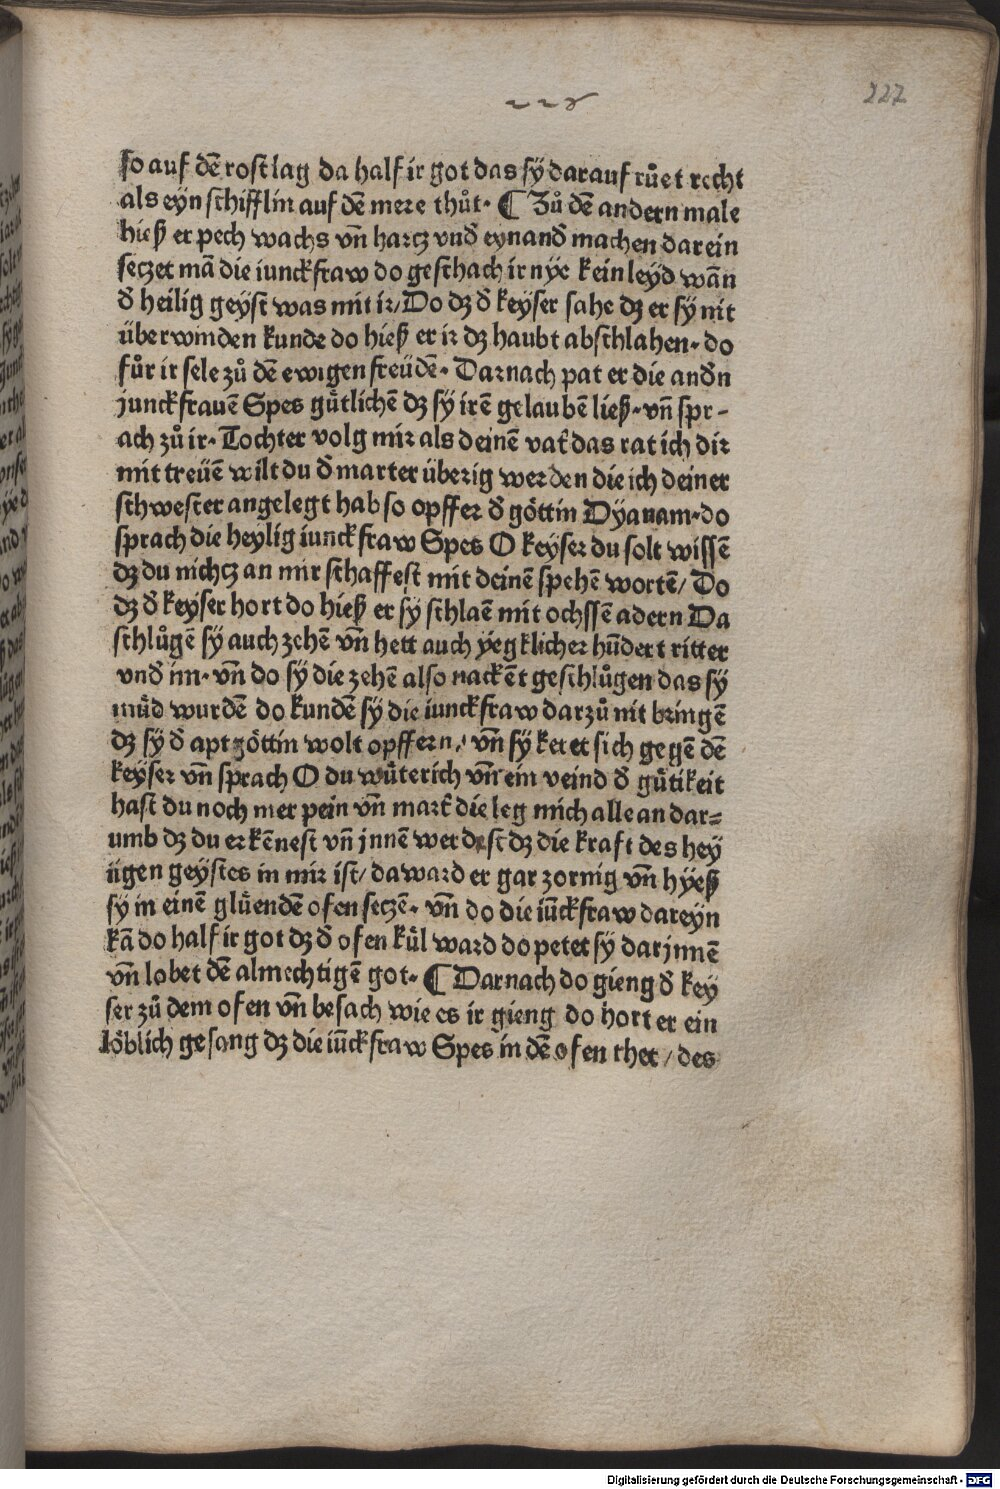 228
227
so auf dē rost lag da half ir got das sÿ darauf růet recht
als eyn schifflin auf dē mere thůt· ¶ Zů dē andern male
hieß er pech wachs vn̄ hartz vnđ eynanđ machen darein
seczet mā die iunckfraw do geschach ir nÿe kein leÿd wān
đ heilig geÿst was mit ir/ Do dz đ keÿser sahe dz er sÿ nit
überwinden kunde do hieß er ir dz haubt abschlahen· do
fůr ir sele zů dē ewigen freüdē· Darnach pat er die andn̄
junckfrauē Spes gůtlichē dz sÿ irē gelaubē ließ· vn̄ spr-
ach zů ir· Tochter volg mir als deinē vat̄ das rat ich dir
mit treüē wilt du đ marter überig werden die ich deiner
schwester angelegt hab so opffer đ göttin Dÿanam· do
sprach die heÿlig iunckfraw Spes O keÿser du solt wissē
dz du nichcz an mir schaffest mit deinē spehē wortē/ Do
dz đ keÿser hort do hieß er sÿ schlaē mit ochssē adern Da
schlůgē sÿ auch zehē vn̄ hett auch ÿegklicher hūdert ritter
vnđ im· vn̄ do sÿ die zehē also nackēt geschlůgen das sÿ
můd wurdē do kundē sÿ die iunckfraw darzů nit bringē
dz sÿ đ aptgöttin wolt opffern/ vn̄ sÿ keret sich gegē dē
keÿser vn̄ sprach O du wůterich vn̄ ein veind đ gůtikeit
hast du noch mer pein vn̄ mart̄ die leg mich alle an dar=
umb dz du erkēnest vn̄ jnnē werdest dz die kraft des hey
ligen geÿstes in mir ist/ da ward er gar zornig vn̄ hÿeß
sÿ in einē glůendē ofen seczē· vn̄ do die iūckfraw dareÿn
kā do half ir got dz đ ofen kůl ward do petet sÿ darjnnē
vn̄ lobet dē almechtigē got· ¶ Darnach do gieng đ keÿ
ser zů dem ofen vn̄ besach wie es ir gieng do hort er ein
löblich gesang dz die iūckfraw Spes in dē ofen thet / des
Digitalisierung gefördert durch die Deutsche Forschungsgemeinschaft - DFG